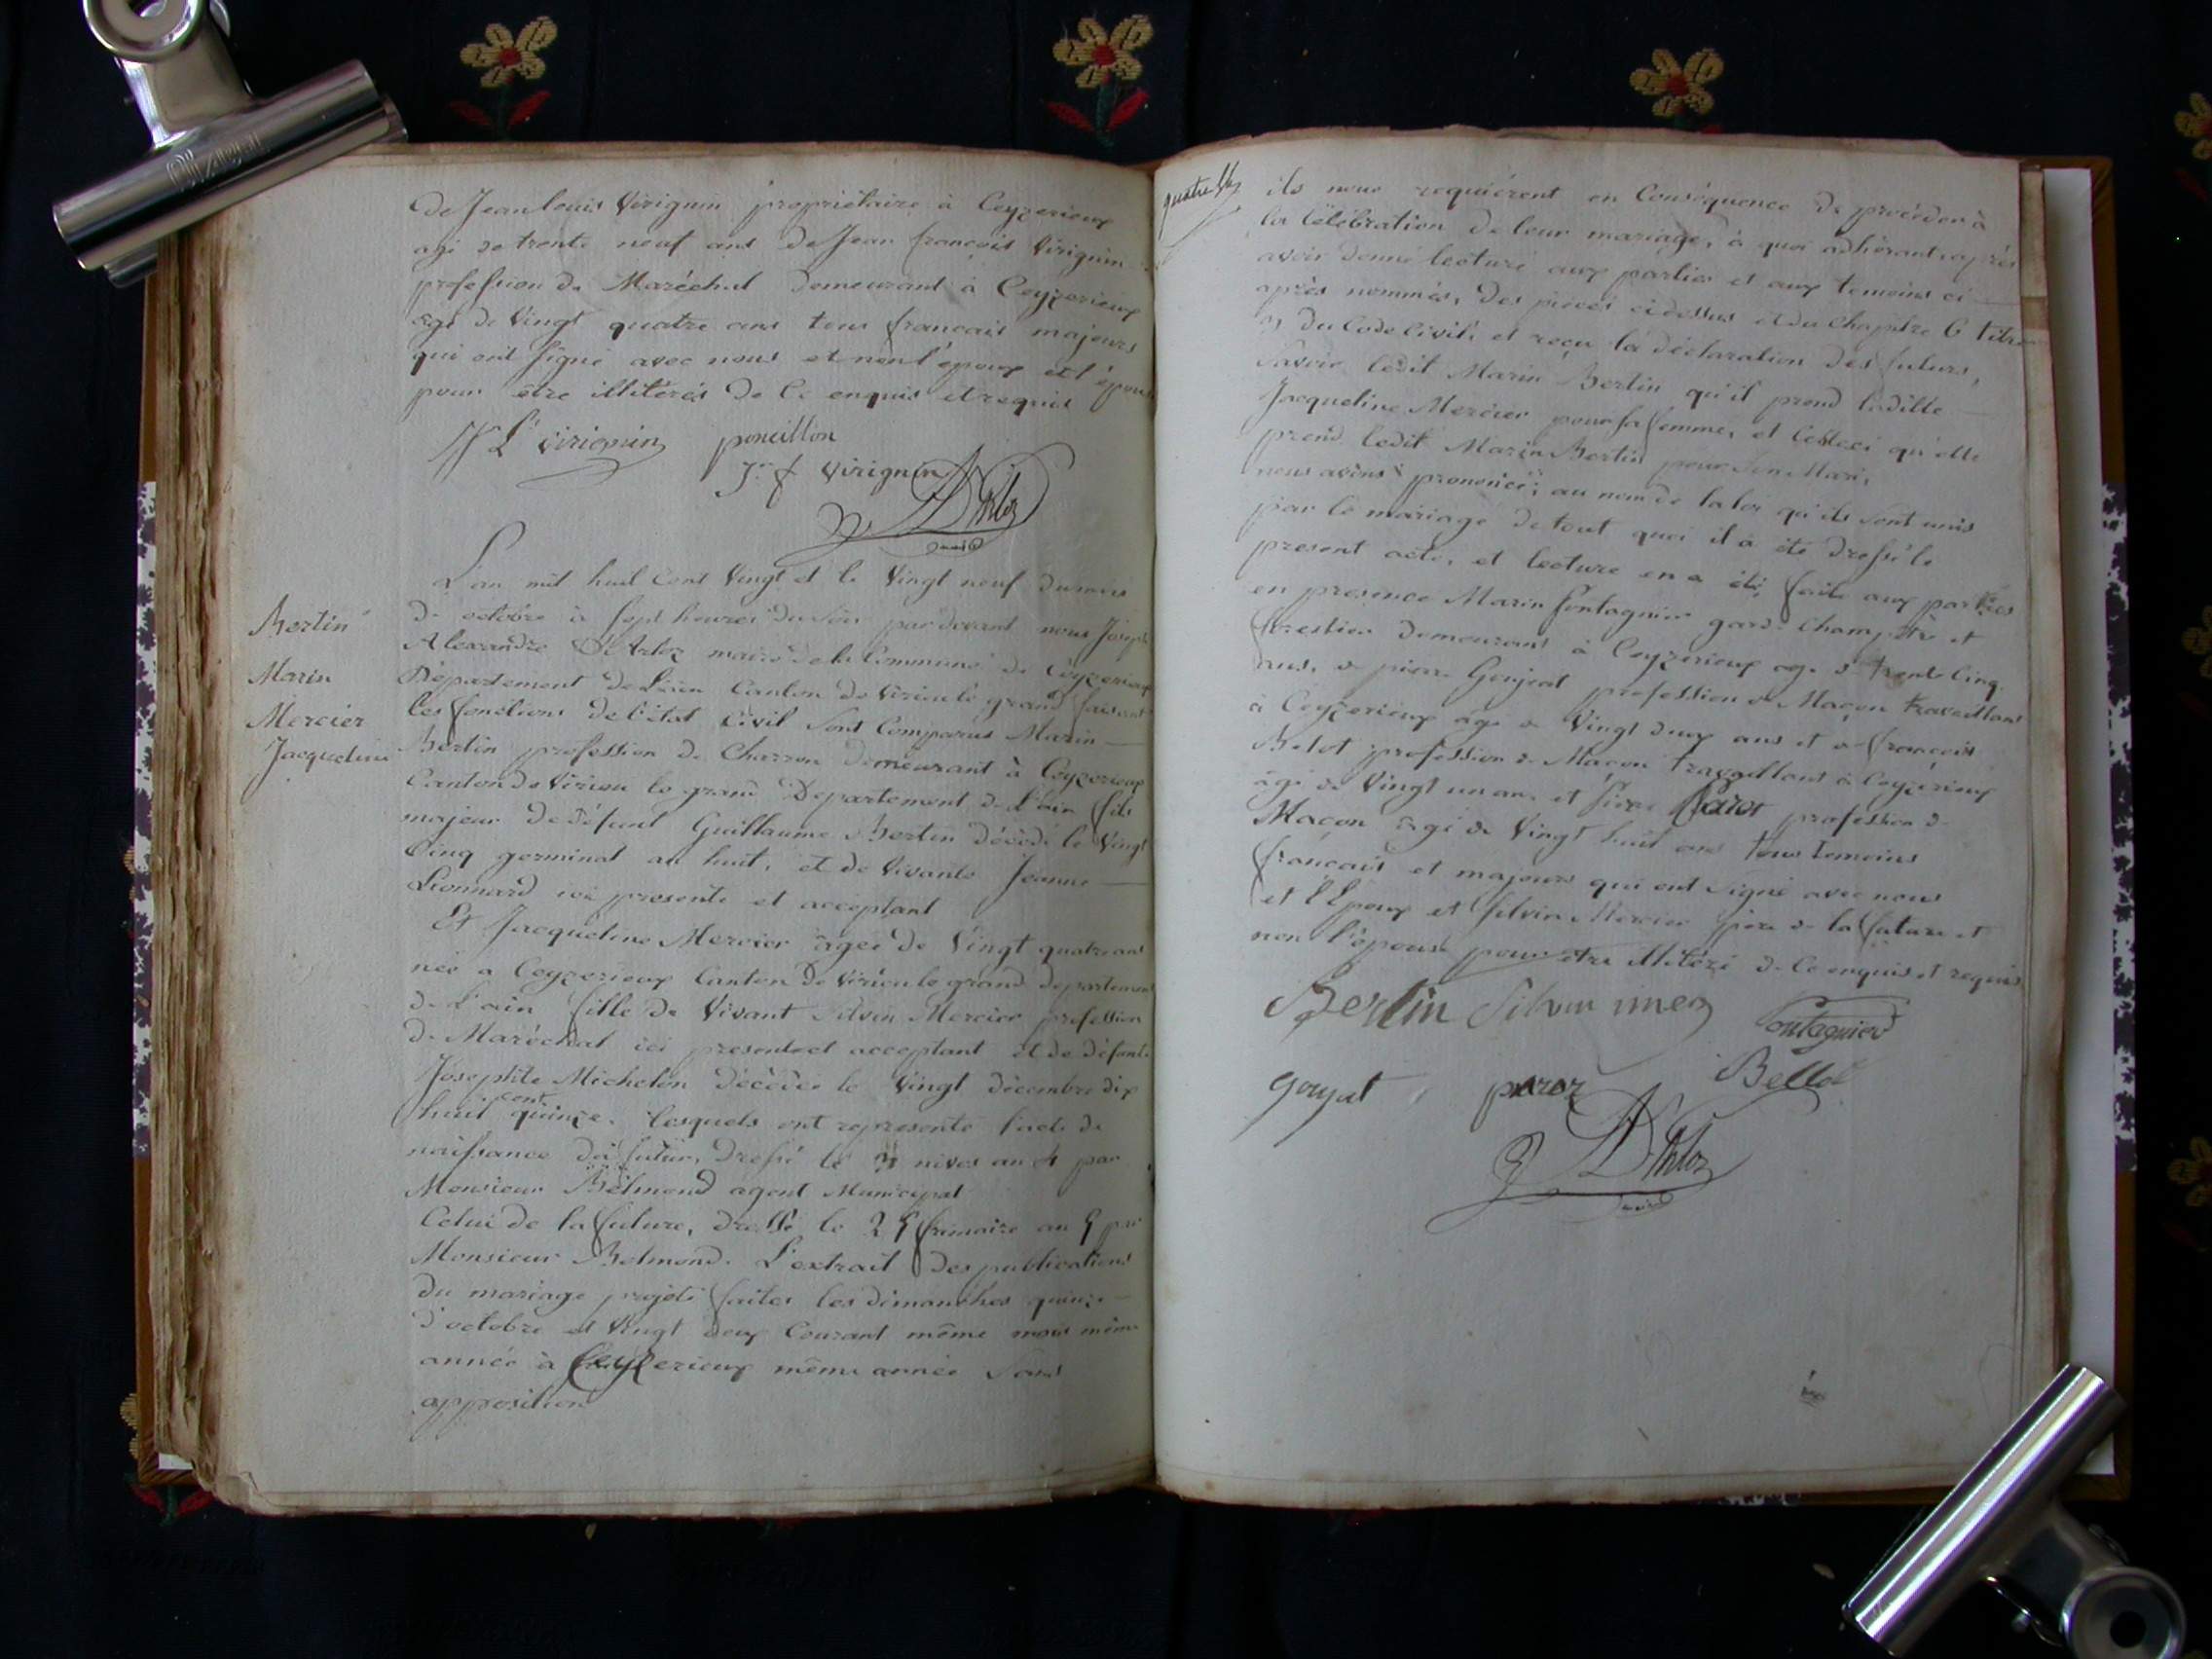 de Jean louis Virignin propriétaire à Ceyzerieux
agé de trente neuf ans de Jean françois Virignin
profession de Maréchal demeurant à Ceyzerieux
âgé de Vingt quatre ans tous français majeurs
qui ont signé avec nous et non l'époux et l'épouse
pour être illitérés de Ce enquis et requis
J L Virignin poncillon
J. f virignin
D'Arloz
L'an mil huit Cent Vingt et le Vingt neuf du mois
de octobre à Sept heures du Soir par devant nous Joseph
Alexandre D'Arloz maire de la Commune de Ceyzerieux
Département de L'ain Canton de Virieu le grand faisant
les fonctions de l'état Civil Sont Comparus Marin
Bertin profession de Charron demeurant à Ceyzerieux
Canton de Virieu le grand Departement de L'ain fils
majeur de défunt Guillaume Bertin décédé le Vingt
Cinq germinal an huit, et de Vivante Jeanne
Lionnard ici presente et acceptant
Et Jacqueline Mercier âgée de Vingt quatre ans
née a Ceyzerieux Canton de Virieu le grand departement
de L'ain fille de Vivant Silvin Mercier profession
de Maréchal ici present et acceptant et de défunte
Josephte Michelon décédée le Vingt décembre dix
huit cent quinze. lesquels ont representé l'acte de
naissance du futur, dressé le nivos an 4 par
Monsieur Belmond agent Municipal
Celui de la future, dressé le 25 frimaire an 5 par
Monsieur Belmond. L'extrait des publications
du mariage projeté faites les dimanches quinze
d'octobre et Vingt deux Courant même mois même
année à Ceyzerieux même année Sans
opposition
Bertin
Marin
Mercier
Jacqueline
ils nous requiérent en Conséquence de procéder à
la Célébration de leur mariage, à quoi adhérant après
avoir donné lecture aux parties et aux temoins ci
après nommés, des pièces cidessus et du Chapitre 6 titre
du Code Civil, et reçu la déclaration des futurs,
Savoir ledit Marin Bertin qu'il prend laditte
Jacqueline Mercier pour sa femme, et Celleci qu'elle
prend ledit Marin Bertin pour Son Mari,
nous avons prononcé; au nom de la loi qu'ils Sont unis
par le mariage de tout quoi il a été dressé le
present acte, et lecture en a été faite aux parties
en presence Marin Pontagnier garde Champêtre et
forestier demeurant à Ceyzerieux agé de trente Cinq
ans, de pierre Goujeat profession de Maçon travaillant
à Ceyzerieux agé de Vingt deux ans et de françois
Belot profession de Maçon travaillant à Ceyzerieux
âgé de Vingt un ans et profession de
Maçon âgé de Vingt huit ans tous temoins
français et majeurs qui ont signé avec nous
et l'Epoux et Silvin Mercier père de la future et
non l'épouse pour être illitéré de Ce enquis et requis
Bertin Silvin Pontagnier
Bellot
D'Arloz